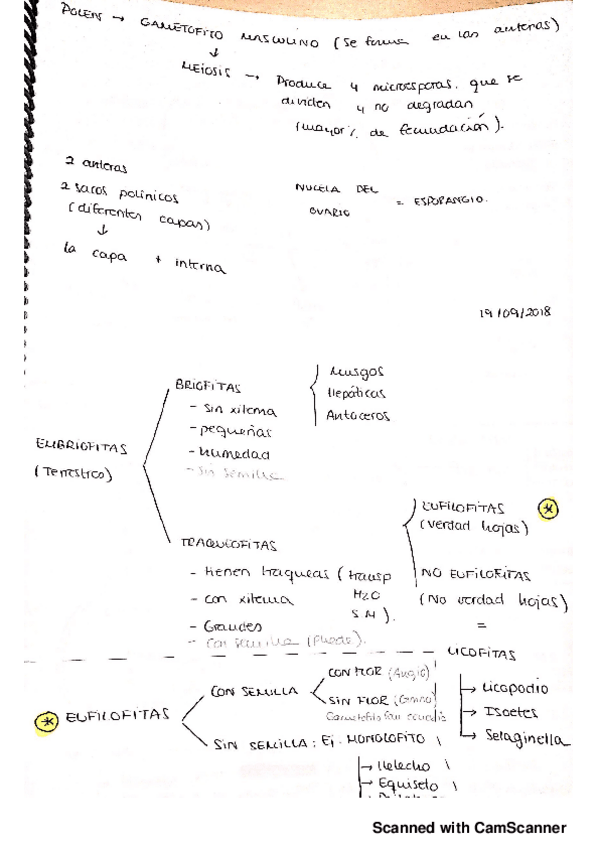 POLEN → GAMETOFITO MASCULINO (se forma en las anteras)
↓
MEIOSIS → Produce 4 microesporas, que se
dividen y no degradan
(mayor % de fecundación).
2 anteras
2 sacos polínicos
(diferentes capas)
↓
la capa + interna
NUCELA DEL
OVARIO
= ESPORANGIO.
19/09/2018
EMBRIOFITAS
(Terrestico)
BRIOFITAS
- sin xilema
- pequeñas
- humedad
- sin semilla
Musgos
Hepáticas
Antoceros
TRAQUEOFITAS
- tienen traqueas (transp
H2O
S.M).
- con xilema
- Grandes
- con semilla (puede).
EUFILOFITAS
(verdad hojas)
NO EUFILOFITAS
(No verdad hojas)
=
LICOFITAS
→ Licopodio
→ Isoetes
→ Selaginella
* EUFILOFITAS
CON SEMILLA
CON FLOR (Angio)
SIN FLOR (Gimno)
SIN SEMILLA: Ej. MONOLOFITO
→ Helecho
→ Equiseto
Scanned with CamScanner